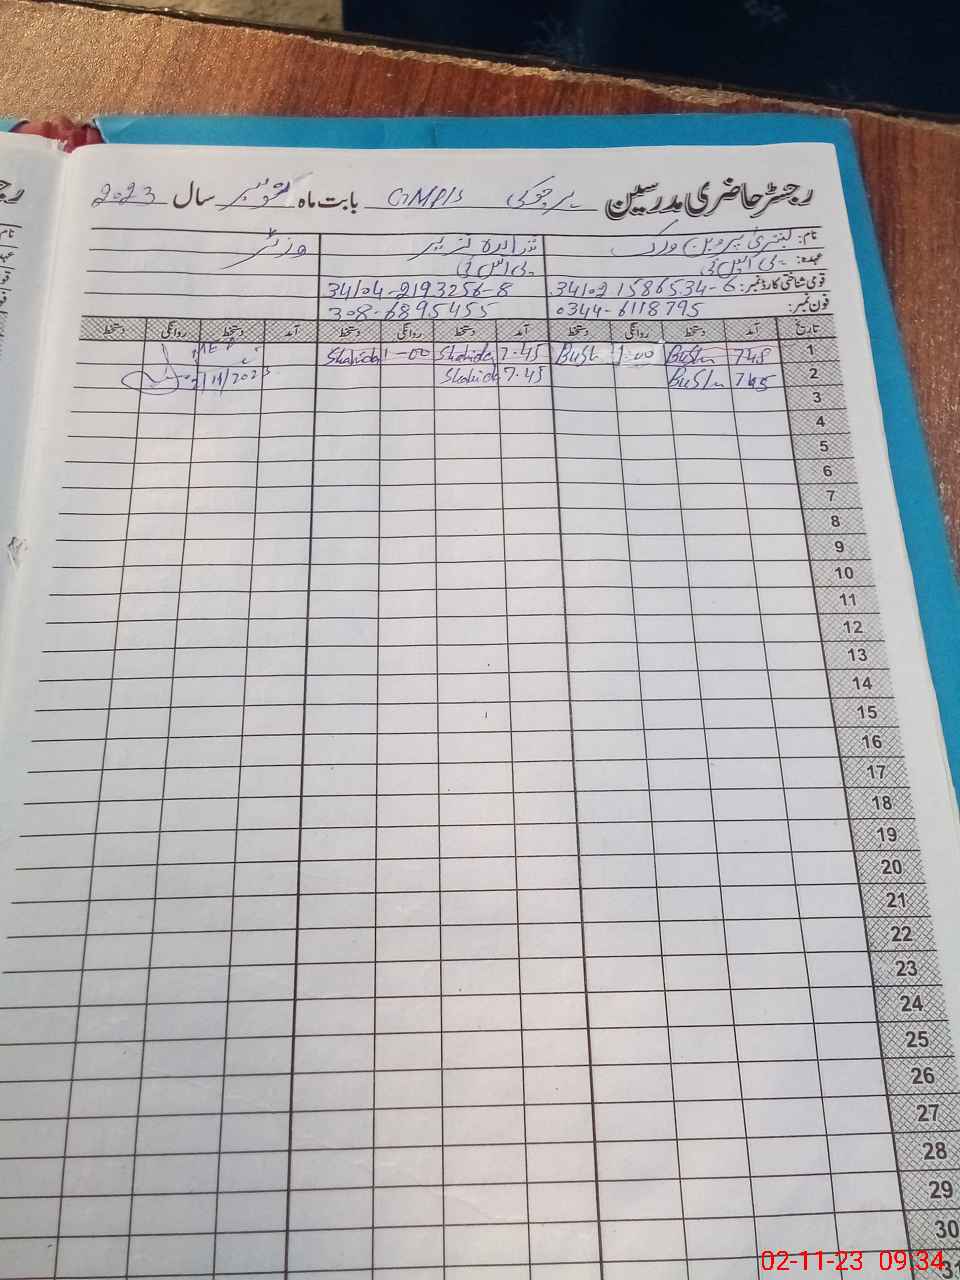 رجسٹر حاضری مدرسین GMPIS بابت ماہ نومبر سال 2023
نام: بشریٰ پروین ورک وزٹر
عہدہ: پی ایس ٹی پی ایس ٹی
قومی شناختی کارڈ نمبر: 34102 1586534-6 34104-2193256-8
فون نمبر: 0344-6118795 308-6895455
تاریخ آمد دستخط روانگی دستخط آمد دستخط روانگی دستخط آمد دستخط روانگی دستخط
1 7.45 Bush 1.00 Bush 7.45 Shahida 1-00 Shahida
2 7.45 Bush 7.45 Shahida /11/2023
3
4
5
6
7
8
9
10
11
12
13
14
15
16
17
18
19
20
21
22
23
24
25
26
27
28
29
30
31
02-11-23 09:34